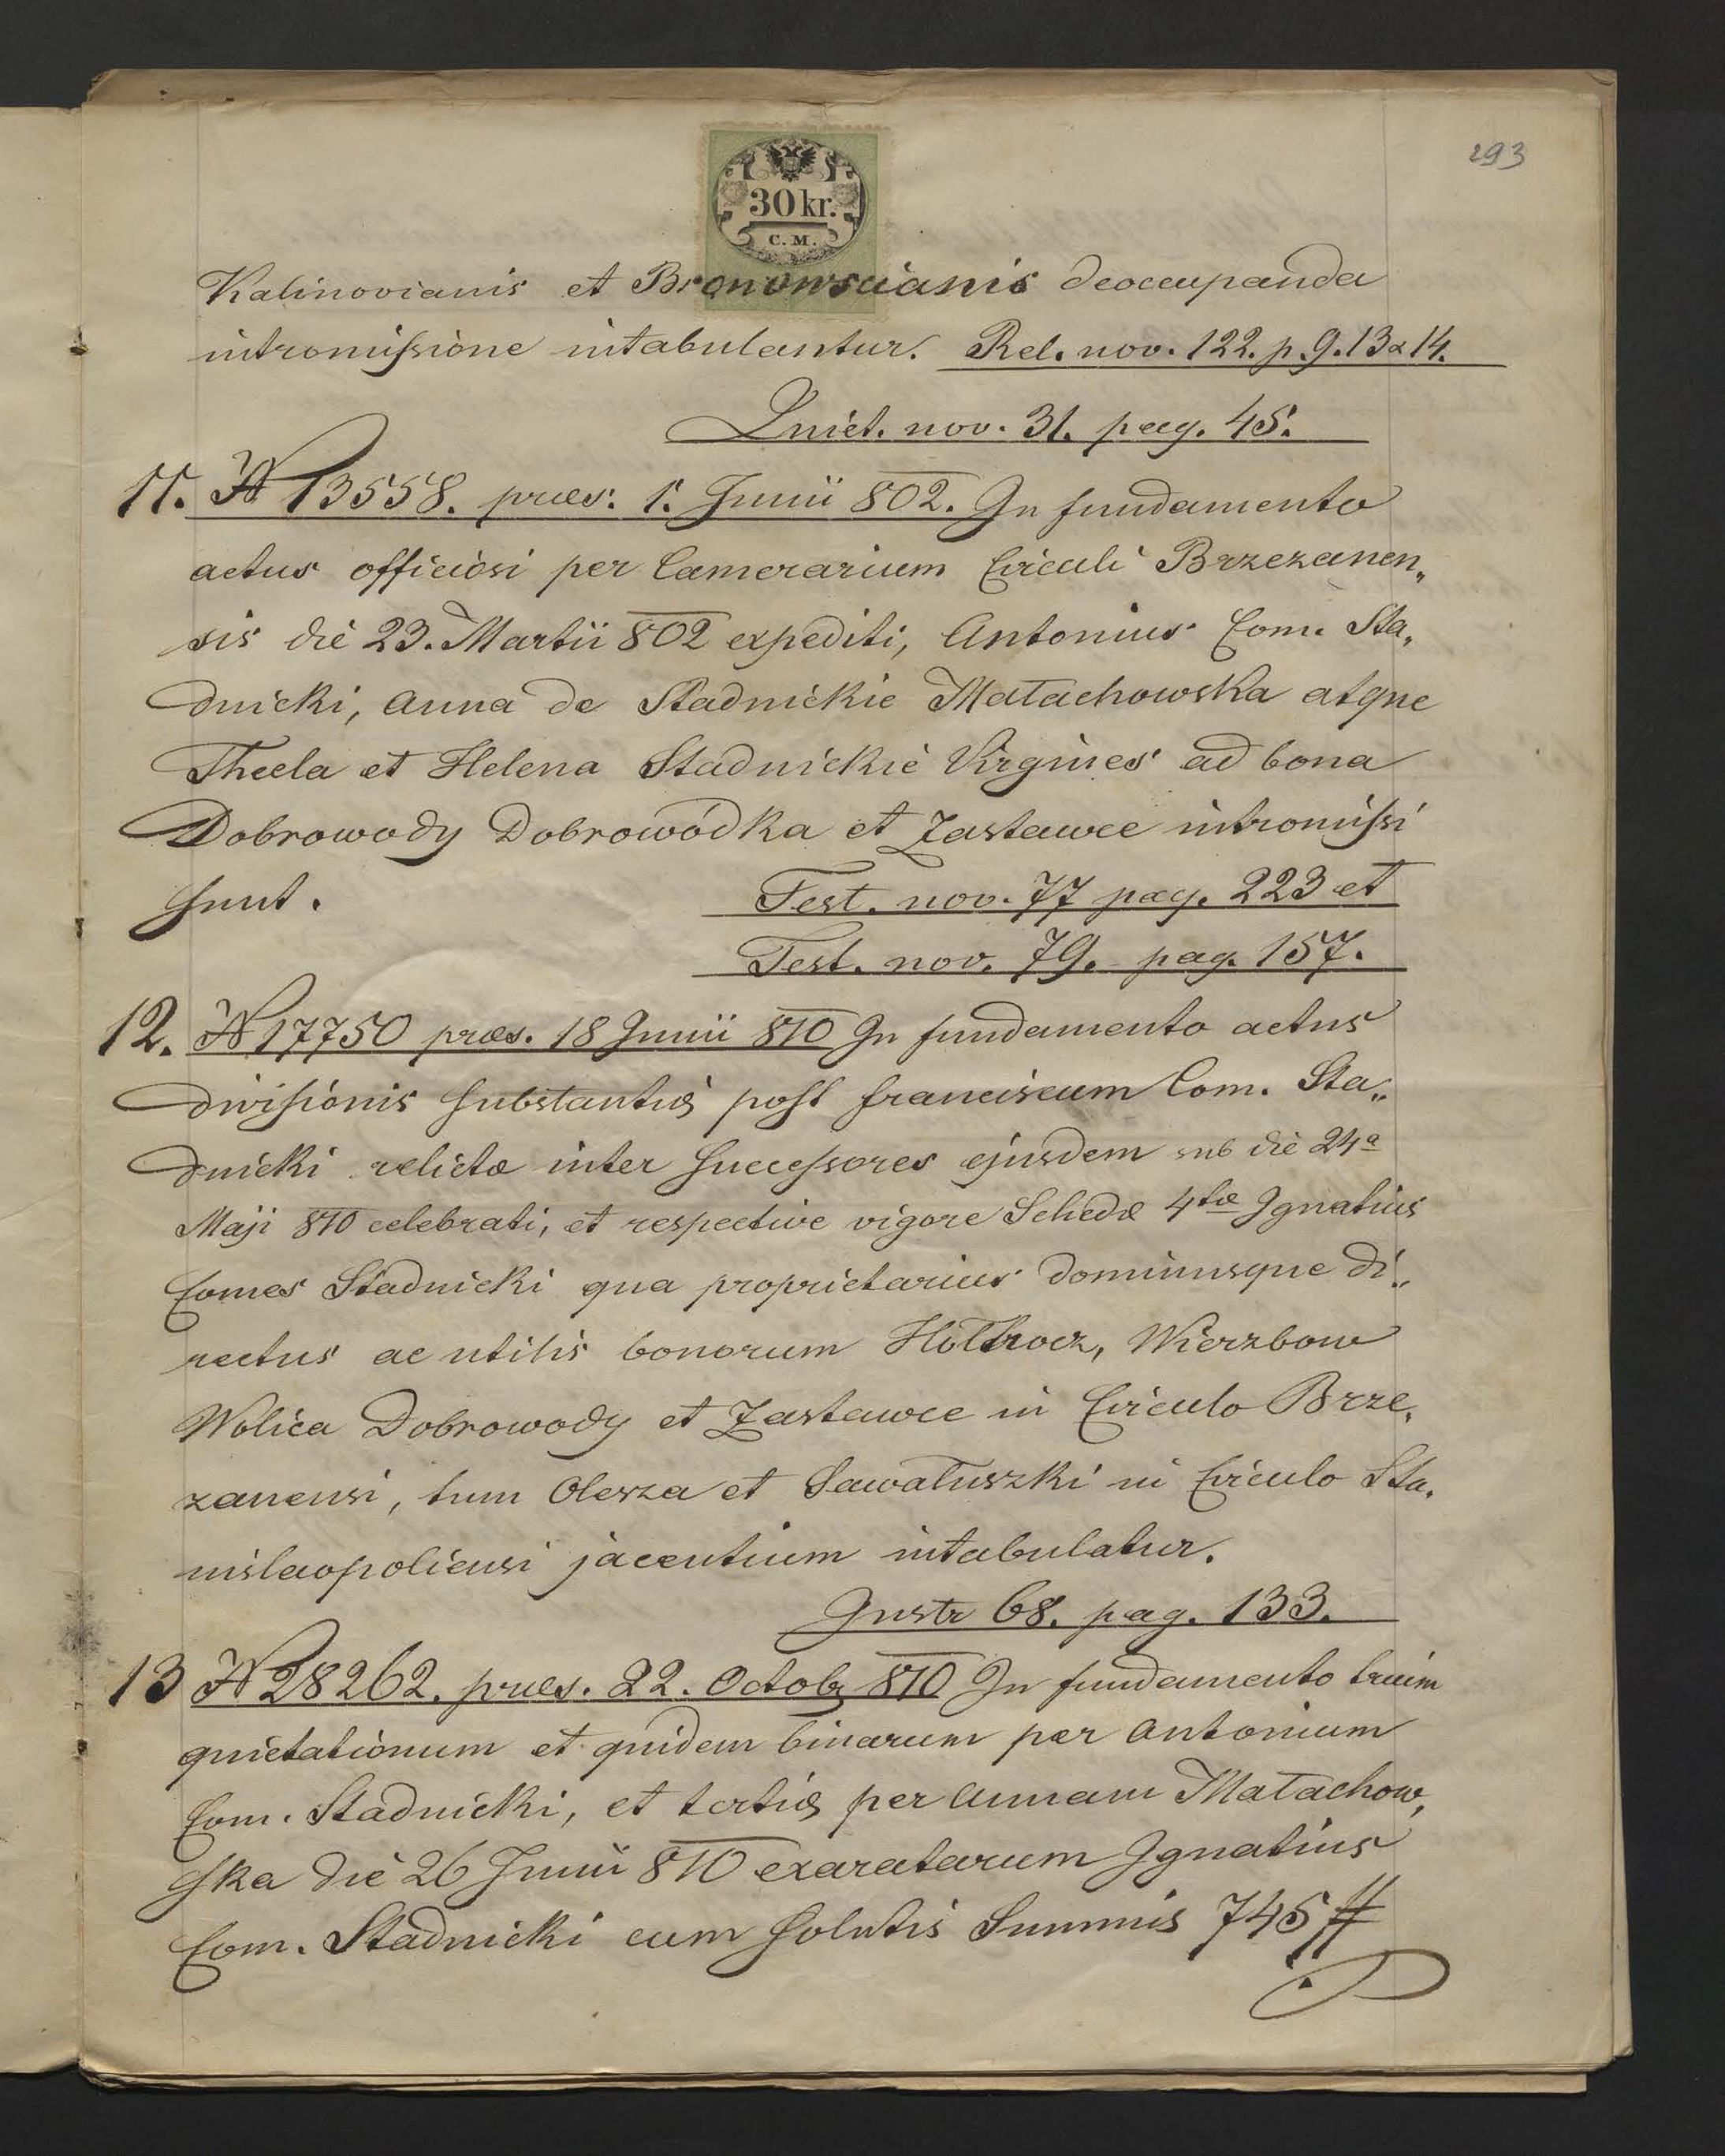 293
30 kr.
C. M.
Kalinovianis et Bronowscianis deoccupanda
intromissione intabulantur. Rel. nov. 122. p. 9. 13 & 14.
Quiet. nov. 31. pag. 45.
11. N 13558. præs. 1. Junii 802. In fundamento
actus officiosi per Camerarium Circuli Brzezanen„
sis die 23. Martii 802 expediti, Antonius Com. Sta„
dnicki, Anna de Stadnickie Małachowska atque
Thecla et Helena Stadnickie Virgines ad bona
Dobrowody Dobrowódka et Zastawce intromissi
sunt. Test. nov. 77 pag. 223 et
Test. nov. 79. pag. 157.
12. N 17750 præs. 18 Junii 810 In fundamento actus
divisionis substantiæ post Franciscum Com. Sta„
dnicki relictæ inter successores ejusdem sub die 24a
Maji 810 celebrati, et respective vigore Schedæ 4tæ Ignatius
Comes Stadnicki qua proprietarius dominusque di„
rectus ac utilis bonorum Hołhocz, Wierzbow
Wolica Dobrowody et Zastawce in Circulo Brze„
zanensi, tum Olesza et Sawałuszki in Circulo Sta„
nislaopoliensi jacentium intabulatur.
Instr 68. pag. 133.
13 N 28262. præs. 22. Octob 810 In fundamento trium
quietationum et quidem binarum per Antonium
Com. Stadnicki, et tertiæ per Annam Małachow„
ska die 26 Junii 810 exaratarum Ignatius
Com. Stadnicki cum solutis Summis 745 #